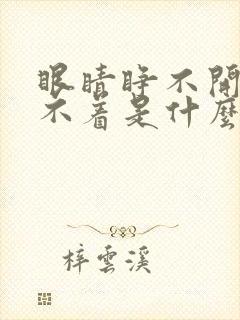 眼睛睁不開
不着是什麼
梓雲溪